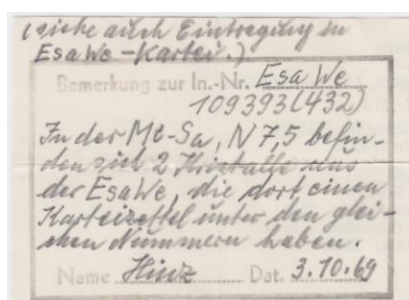 (siehe auch Eintragung in
EsaWe-Kartei.)
Bemerkung zur In.-Nr. EsaWe
109393 (432)
In der Mt-Sa, N 7,5 befin-
den sich 2 Kristalle aus
der EsaWe, die dort einen
Karteizettel unter den glei-
chen Nummern haben.
Name Hinz Dat. 3.10.69